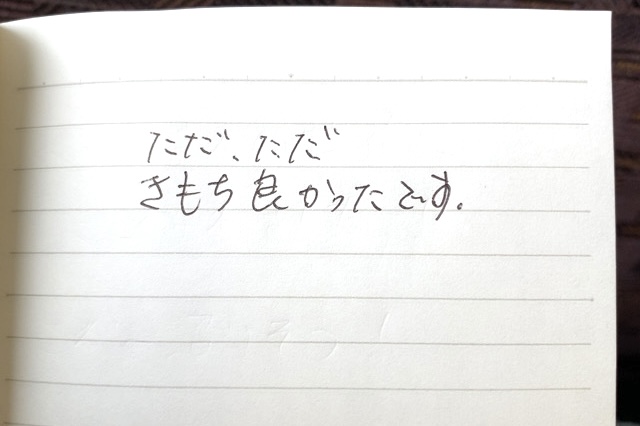 ただ、ただ
きもち良かったです.